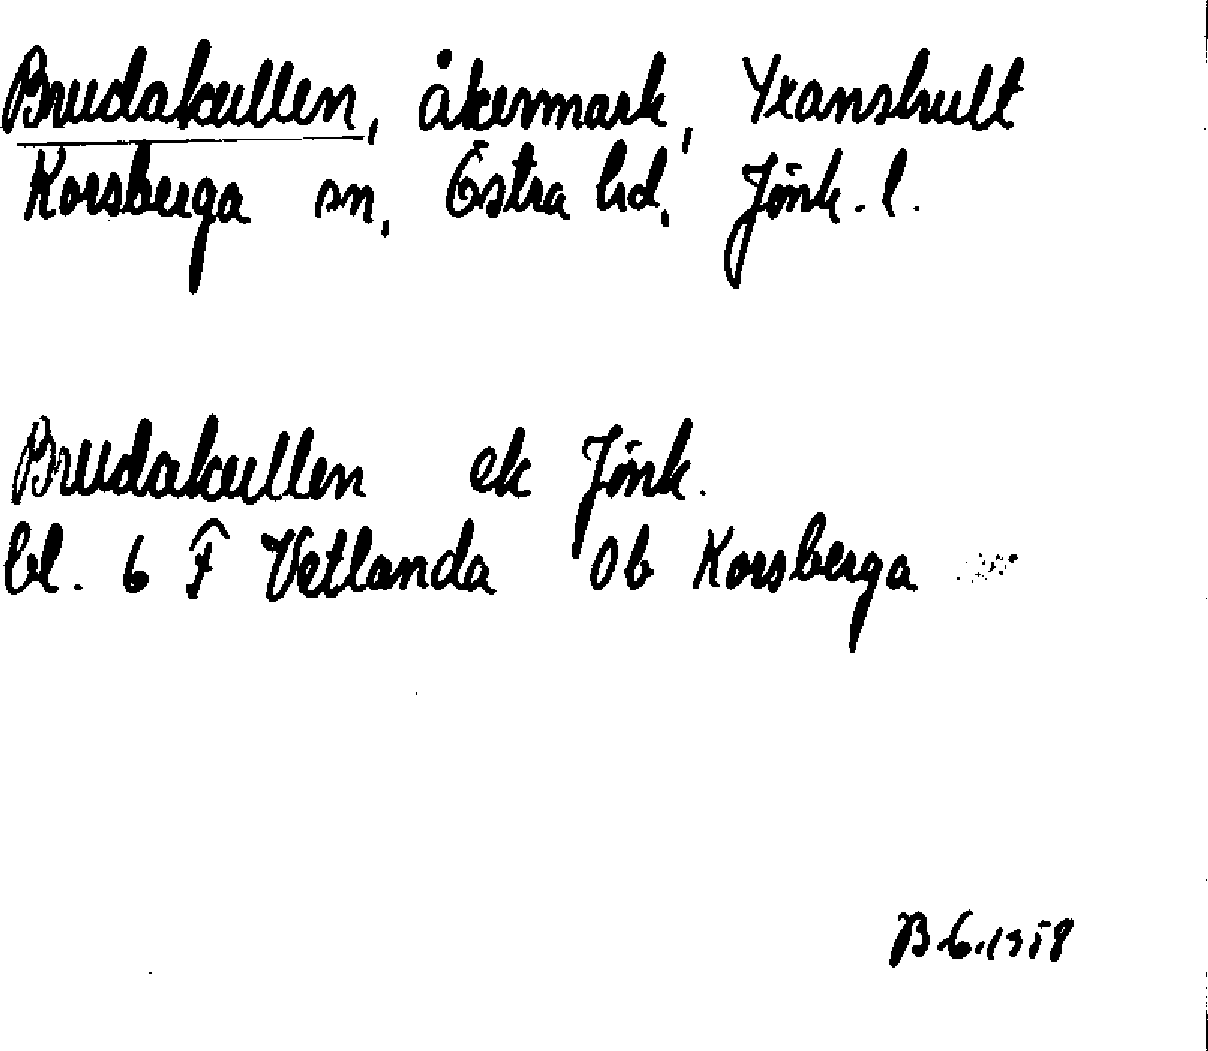 Brudakullen, åkermark, Yxanshult
Korsberga sn, Östra hd, Jönk. l.
Brudakullen ek Jönk.
bl. 6 F Vetlanda Ob Korsberga
B.G. 1958